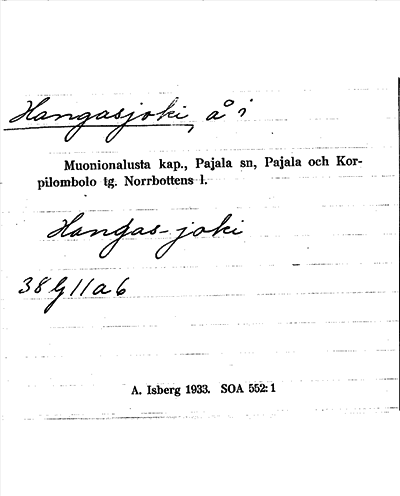 Hangasjoki, å i
Muonionalusta kap., Pajala sn, Pajala och Kor-
pilombolo tg. Norrbottens l.
Hangas-joki
38 G 11 a 6
A. Isberg 1933. SOA 552:1